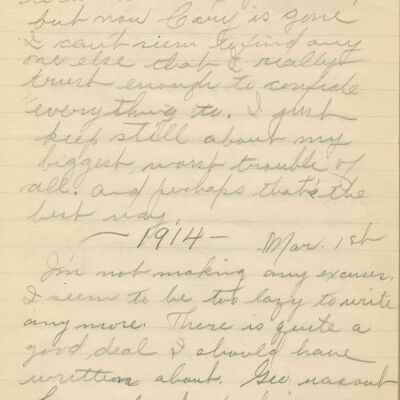 but now Cary is gone
I can't seem to find any
one else that I really
trust enough to confide
everything to. I just
keep still about my
biggest, worst trouble of
all. and perhaps that's the
best way.
— 1914 — Mar. 1st
I'm not making any excuses.
I seem to be too lazy to write
any more. There is quite a
good deal I should have
written about. Geo was out